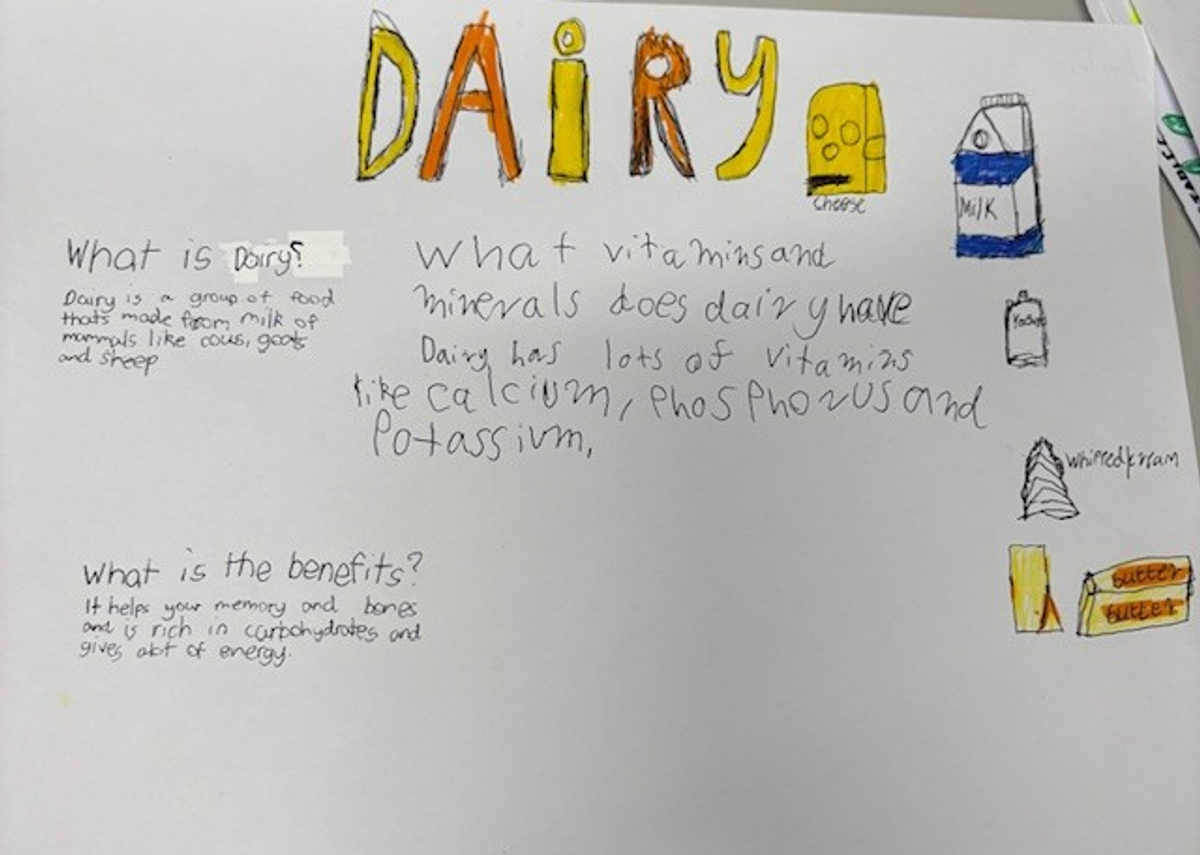 DAiRY
Cheese
MiLK
What is Dairy?
Dairy is a group of food
thats made from milk of
mammals like cows, goats
and sheep
What vitamins and
minerals does dairy have
Dairy has lots of vitamins
like calcium, phosphorus and
Potassium,
Yogurt
whipped cream
butter
butter
What is the benefits?
It helps your memory and bones
and is rich in carbohydrates and
gives alot of energy.